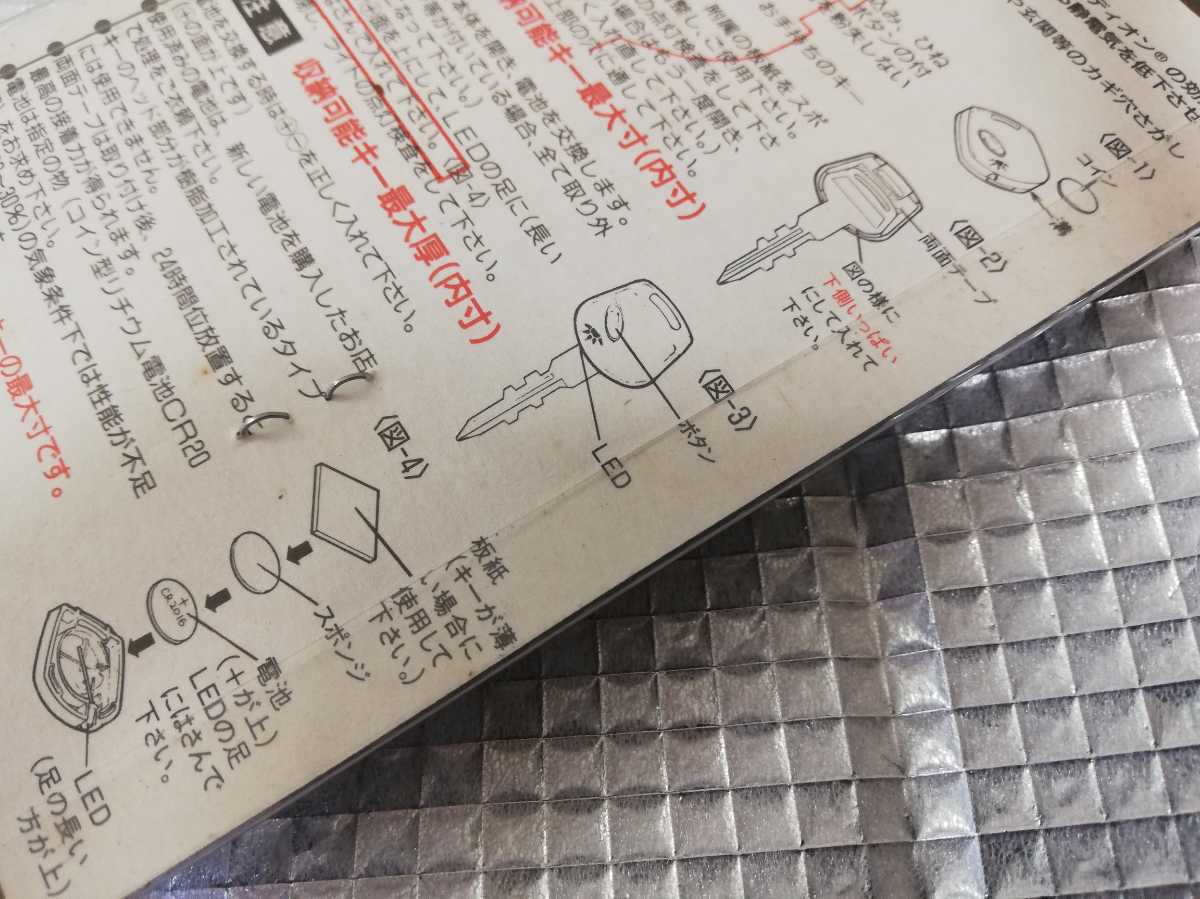 ディオン®の効
静電気を低下させ
や玄関等のカギ穴さがし
ひね
ボタンの付
お手持ちのキー
附属の
ご使用下さい。
の点灯検査をして下さ
い場合はもう一度開き、
く入れ直して下さい。)
上部の穴に通して下さい。
収納可能キー最大寸(内寸)
本体を開き、電池を交換します。
が付いている場合、全て取り外
なって下さい)
の面を上にして、LEDの足に(長い
んで入れて下さい。(図-4)
ライトの点灯検査をして下さい。
収納可能キー最大厚(内寸)
注意
池を交換する時は⊕⊖を正しく入れて下さい。
(⊕の面が上です)
使用済みの電池は、新しい電池を購入したお店
で処理をご依頼下さい。
キーのヘッド部分が樹脂加工されているタイプ
には使用できません。
両面テープは取り付け後、24時間位放置する
最高の接着力が得られます。
電池は指定の物(コイン型リチウム電池CR20
をお求め下さい。
30%)の気象条件下では性能が不足
キーの最大寸です。
〈図-1〉
コイン
溝
〈図-2〉
両面テープ
図の様に
下側いっぱい
にして入れて
下さい。
〈図-3〉
ボタン
LED
〈図-4〉
板紙
(キーが薄
い場合に
使用して
下さい。)
スポンジ
+
CR2016
電池
(+が上)
LEDの足
にはさんで
下さい。
LED
(足の長い
方が上)